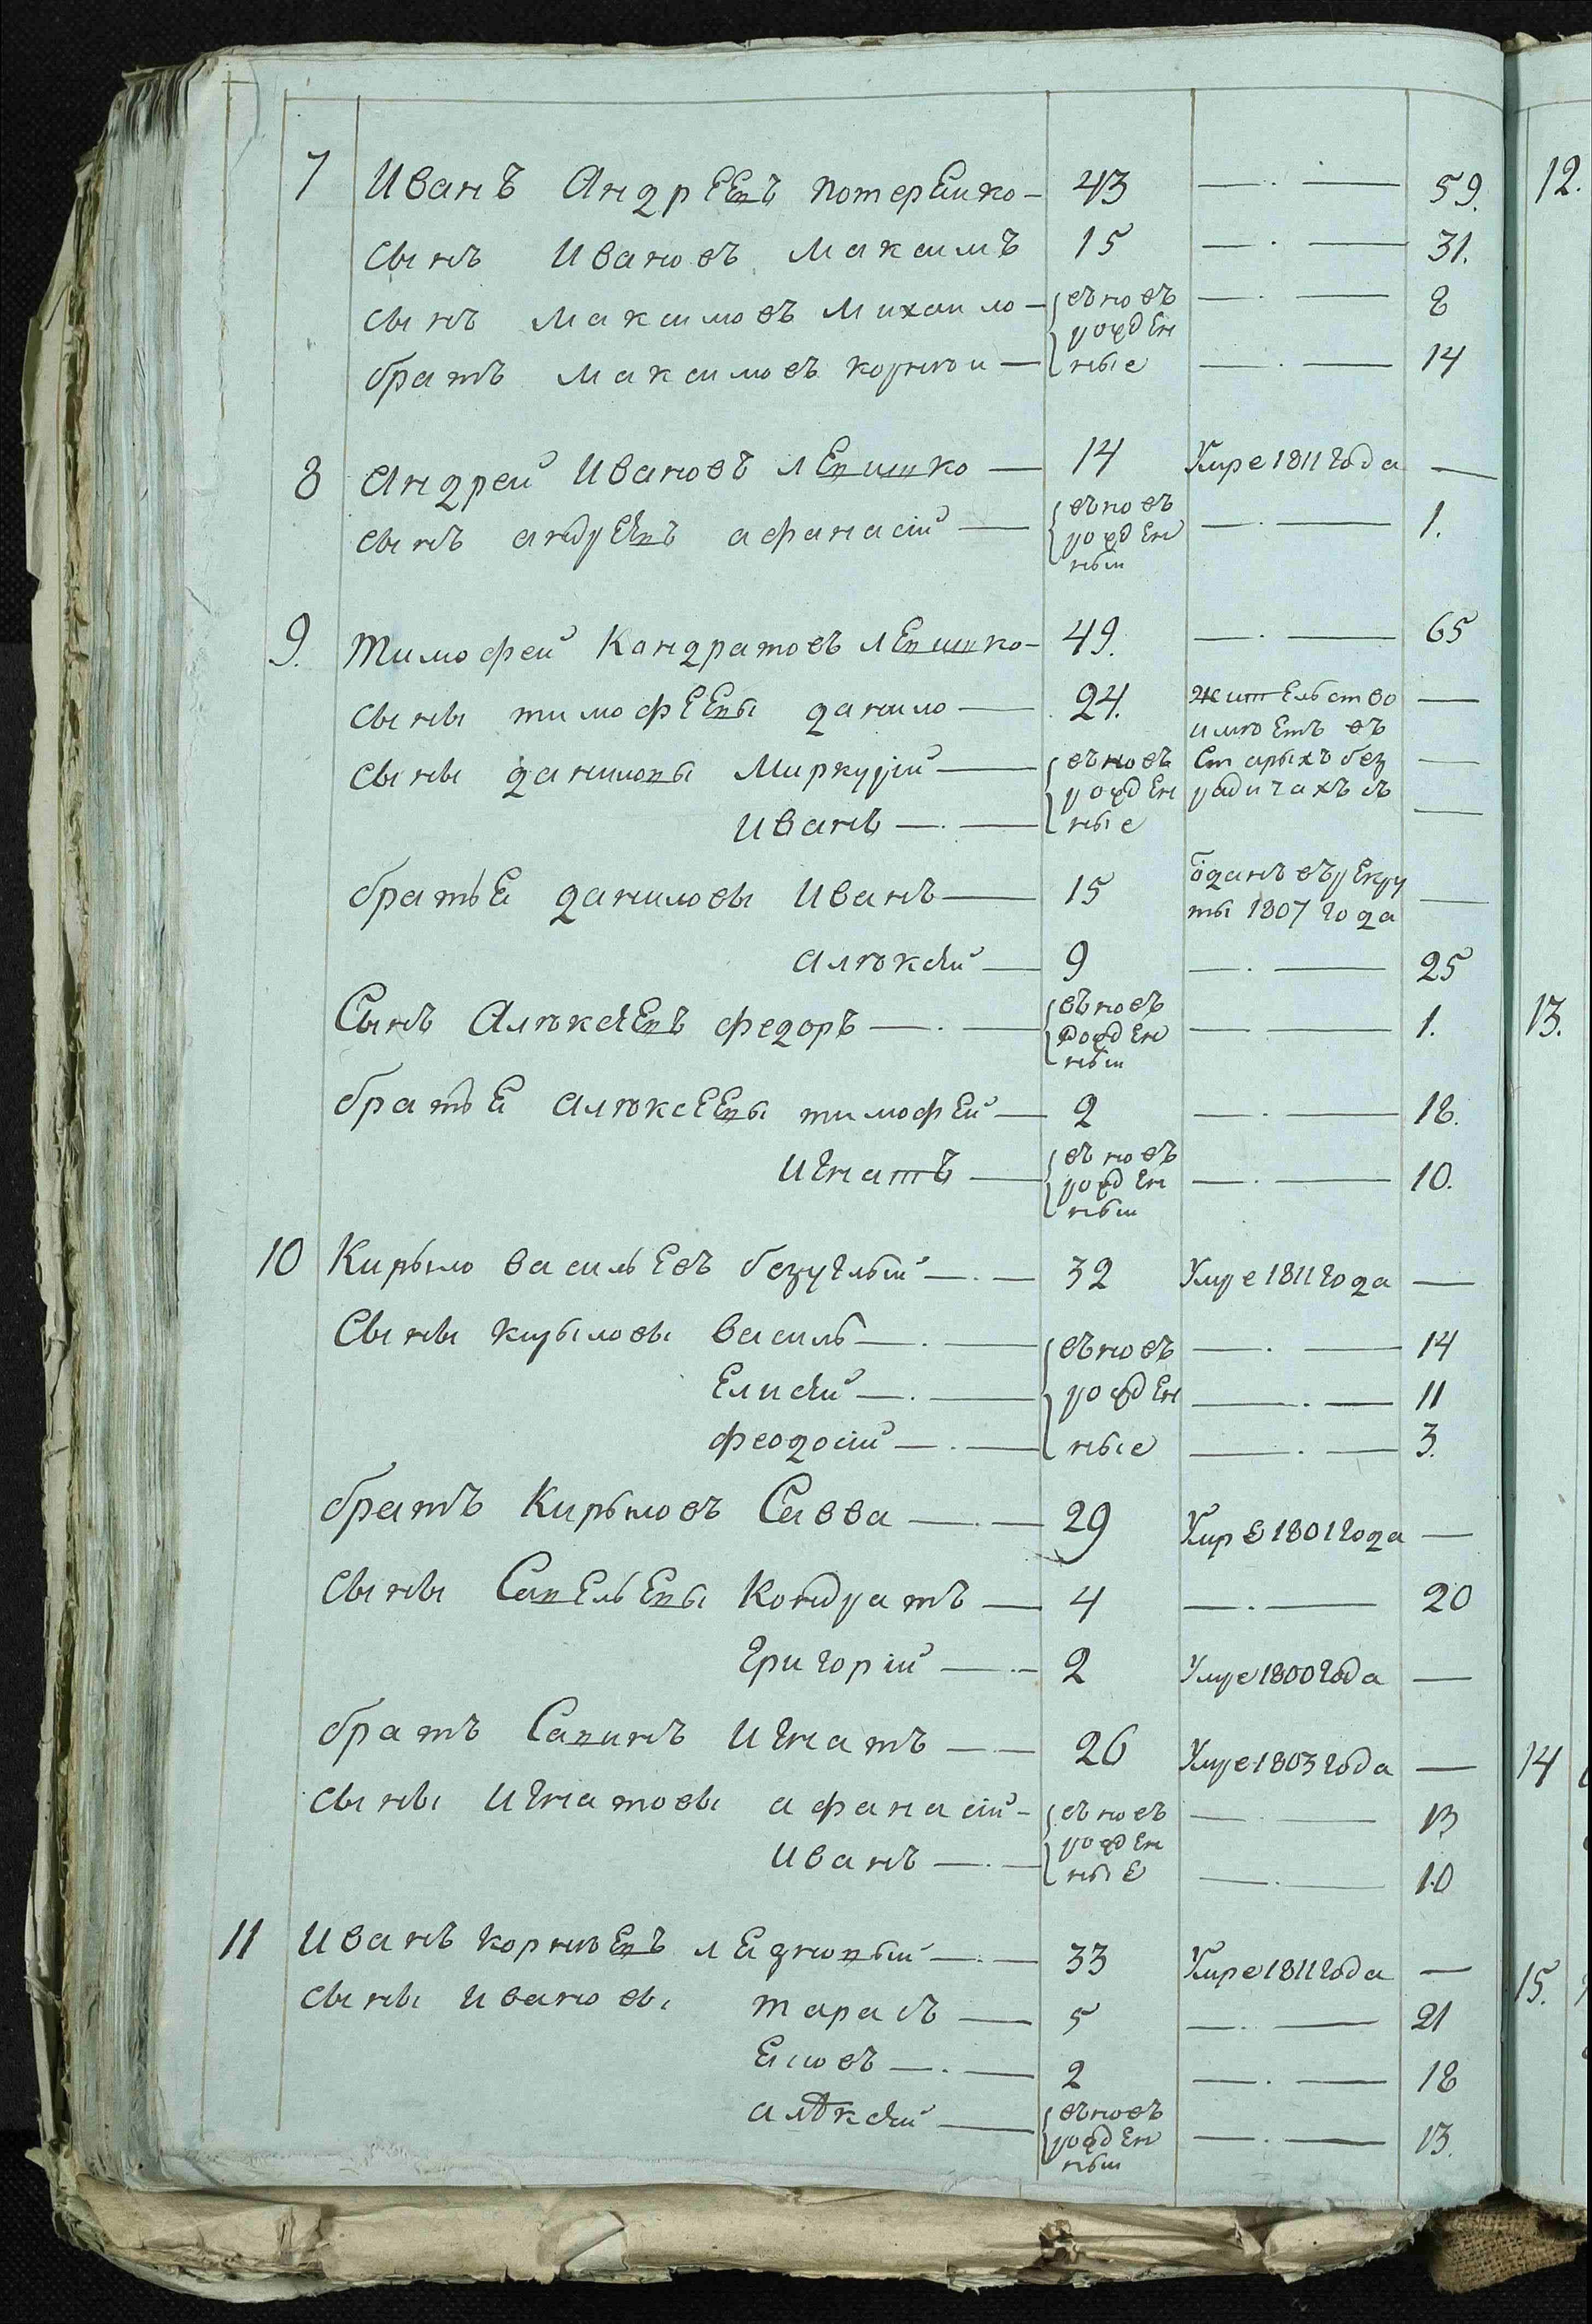 7 Иванъ Андреевъ потерайко — 43 —.— 59.
сынъ Ивановъ Максимъ 15 —.— 31.
сынъ Максимовъ Михаило — вновъ —.— 8
рожден
братъ Максимовъ корней — ные —.— 14
8 Андрей Ивановъ левшко — 14 Умре 1811 года —
сынъ андреевъ афанасій — вновъ —.— 1.
рожден
ный
9. Тимофей Кандратовъ левшко — 49. —.— 65
сыны тимофеевы данило — 24. жительство —
имѣетъ въ
сыны даниловы Миркурій — вновъ Старыхъ без —
рожден радичахъ съ
Иванъ —.— ные —
братья даниловы Иванъ — 15 отданъ въ рекру —
ты 1807 года
алѣксѣй — 9 —.— 25
Сынъ Алѣксѣевъ федоръ —.— вновъ —.— 1.
рожден
ный
братья алѣксеевы тимофей — 2 —.— 18.
Игнатъ — вновъ —.— 10.
рожден
ный
10 Кирыло васильевъ безуглый —.— 32 Умре 1811 года —
Сыны кирыловы василь —.— вновъ —.— 14
Елисѣй —.— рожден —.— 11
феодосій —.— ные —.— 3.
братъ Кирыловъ Савва —.— 29 Умре 1801 года —
сыны Савельевы Кондратъ — 4 —.— 20
Григорій —.— 2 Умре 1800 года —
братъ Савинъ Игнатъ —.— 26 Умре 1803 года —
сыны Игнатовы афанасій — вновъ —.— 13
рожден
Иванъ —.— ные —.— 10
11 Иванъ корнѣевъ ледновый —.— 33 Умре 1811 года —
сыны ивановы тарасъ — 5 —.— 21
Есивъ —.— 2 —.— 18
алѣксѣй — вновъ —.— 13.
рожден
ный
12.
13.
14
15.